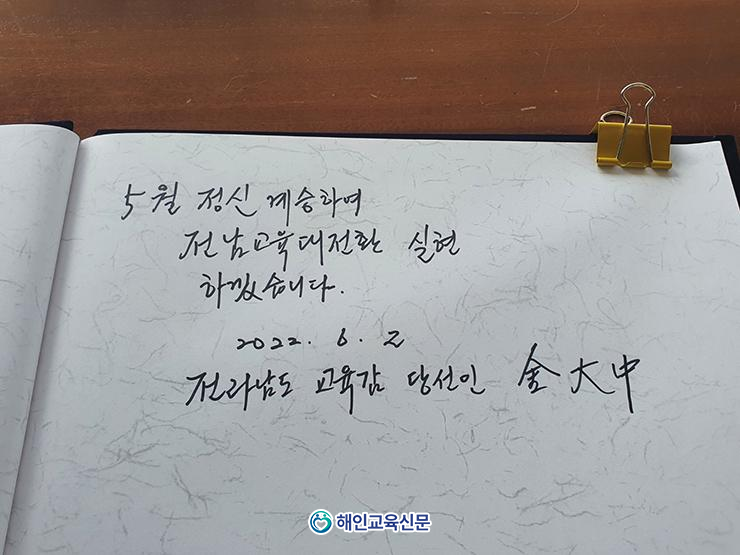 5월 정신 계승하여
전남교육대전환 실현
하겠습니다.
2022. 6. 2
전라남도 교육감 당선인 金大中
해인교육신문